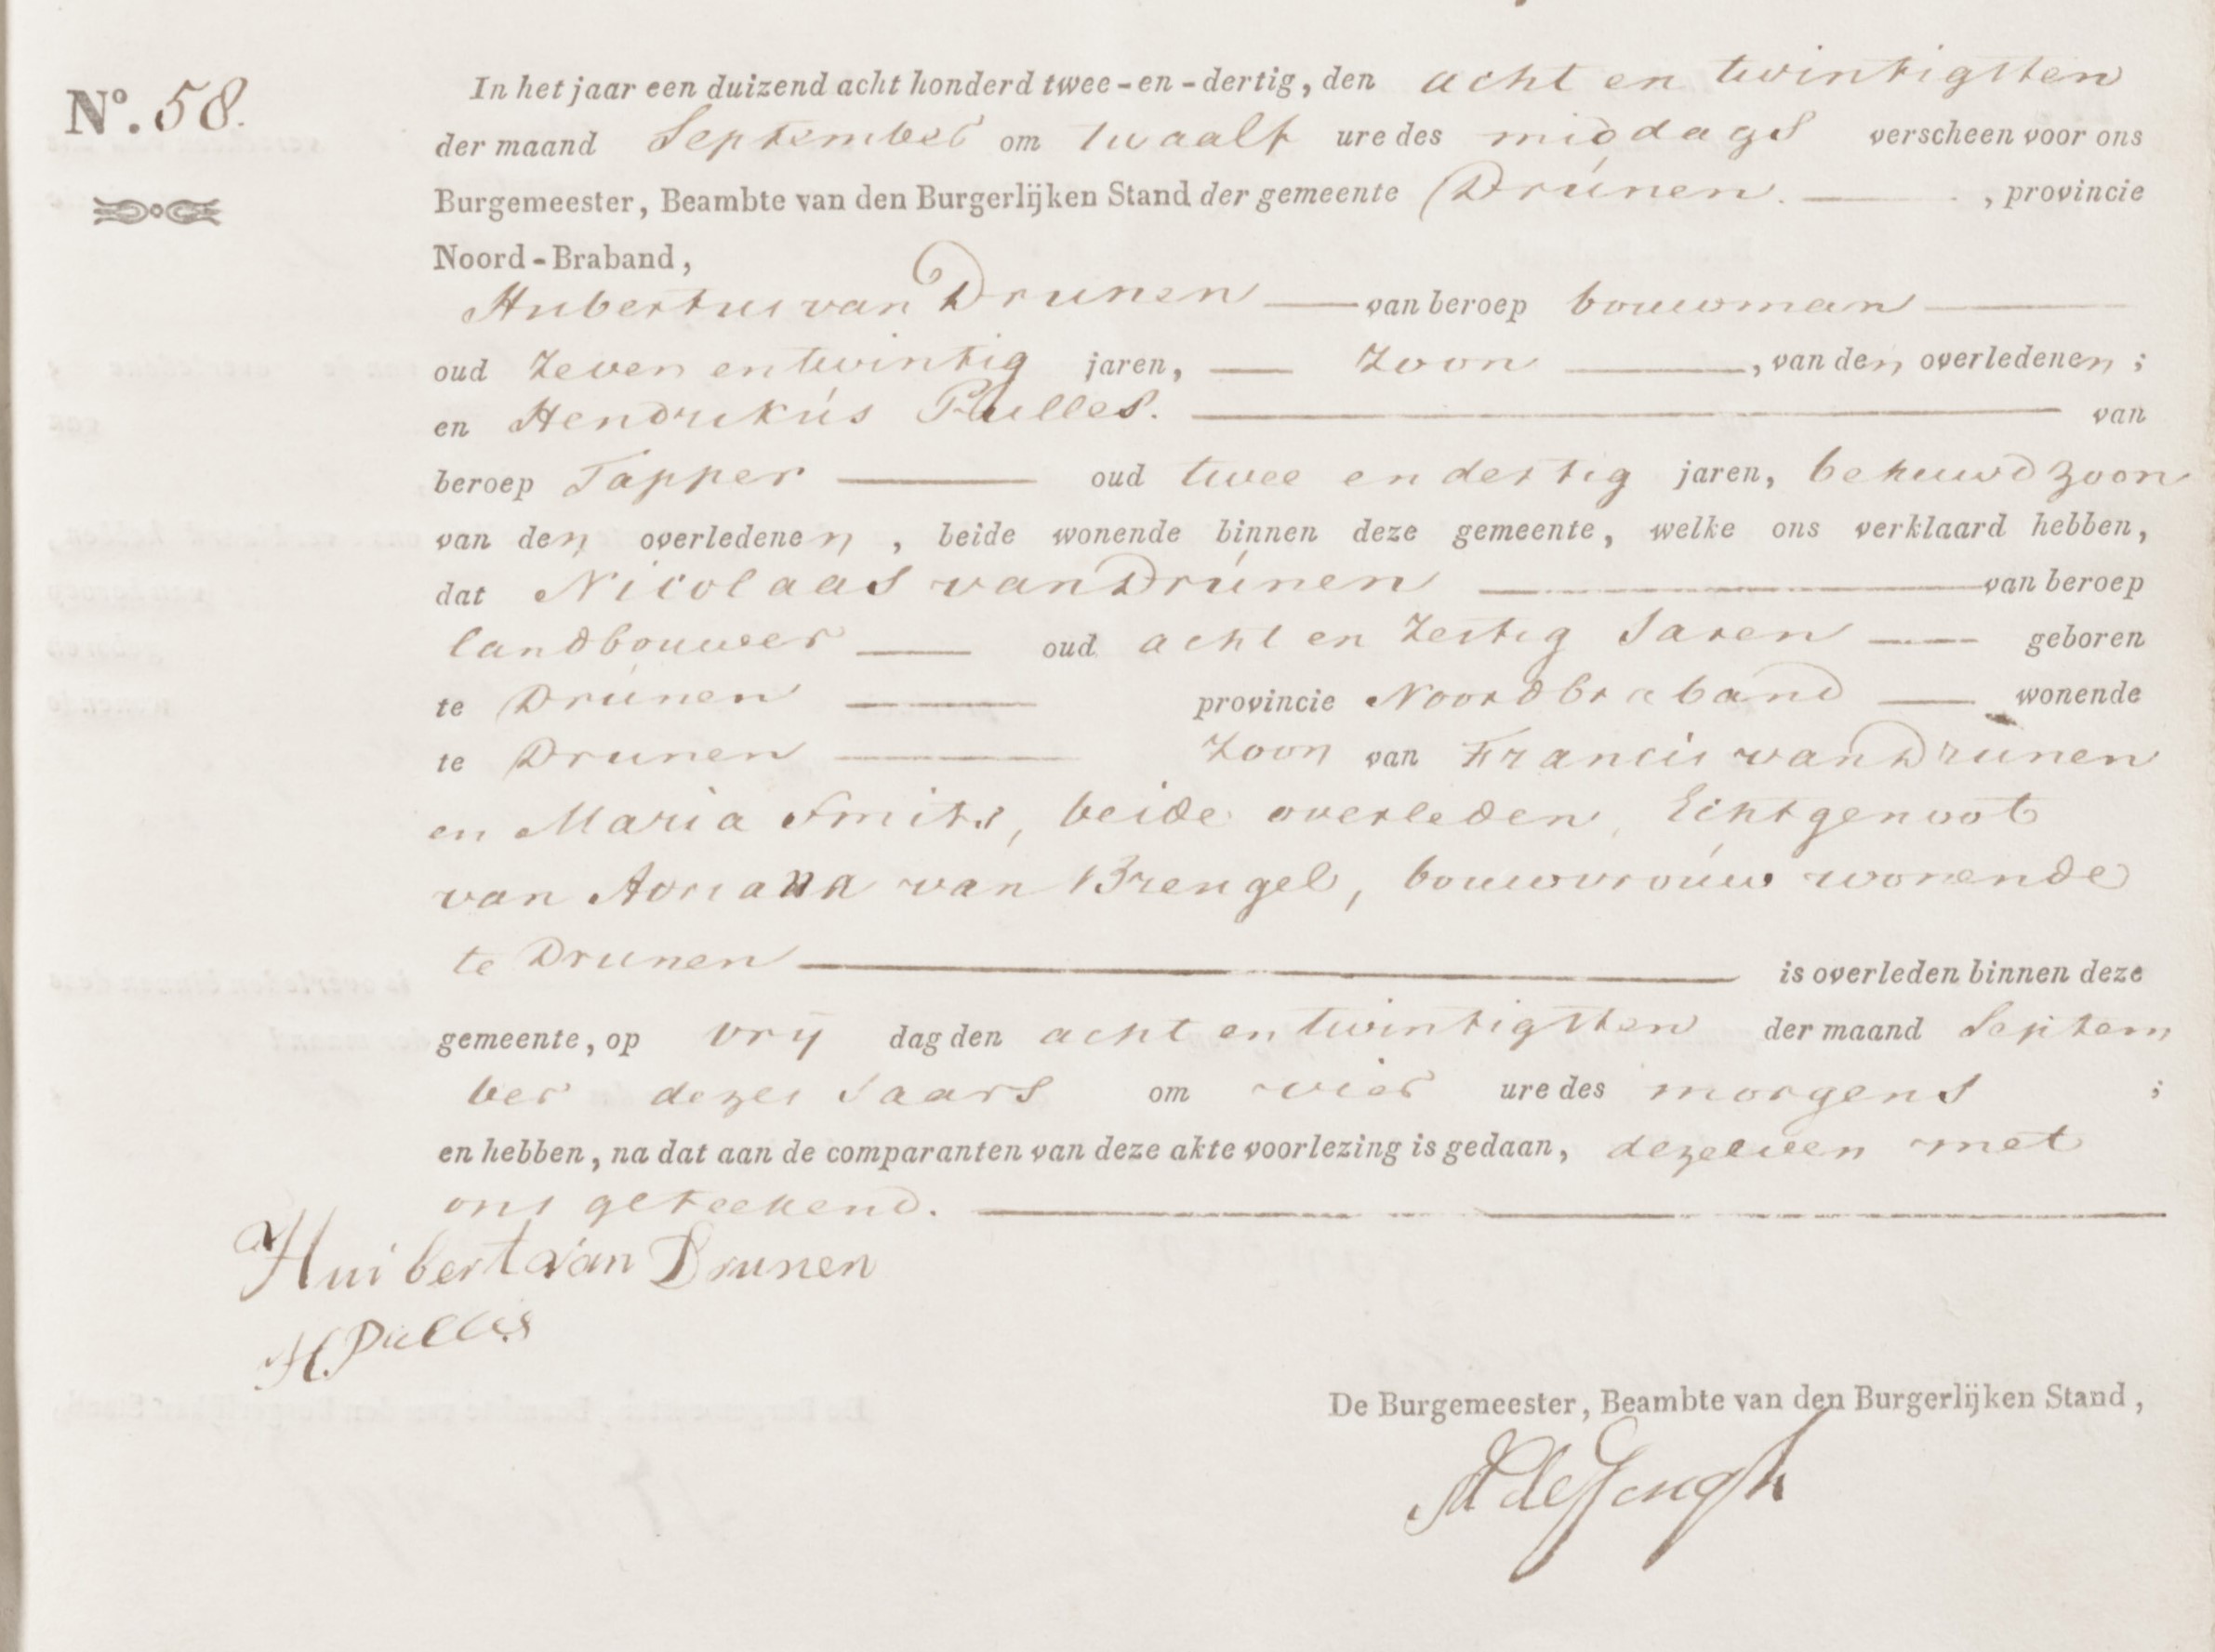 N.º 58.
In het jaar een duizend acht honderd twee-en-dertig, den acht en twintigsten
der maand September om twaalf ure des middags verscheen voor ons
Burgemeester, Beambte van den Burgerlijken Stand der gemeente Drúnen. , provincie
Noord-Braband,
Hubertus van Drunen van beroep bouwman
oud Zeven en twintig jaren, Zoon , van den overledenen ;
en Hendrikús Pulles. van
beroep Tapper oud twee en dertig jaren, behuwd zoon
van den overledenen , beide wonende binnen deze gemeente, welke ons verklaard hebben,
dat Nicolaas van Drúnen van beroep
landbouwer oud acht en Zestig Jaren geboren
te Drúnen provincie Noordbraband wonende
te Drunen Zoon van Francis van Drúnen
en Maria Smits, beide overleden, Echtgenoot
van Adriana van Brengel, bouwvrouw wonende
te Drunen is overleden binnen deze
gemeente, op vrij dag den acht en twintigsten der maand Septem
ber dezes Jaars om vier ure des morgens ;
en hebben, na dat aan de comparanten van deze akte voorlezing is gedaan, dezelven met
ons geteekend.
Huibert van Drunen
H. Pulles
De Burgemeester, Beambte van den Burgerlijken Stand,